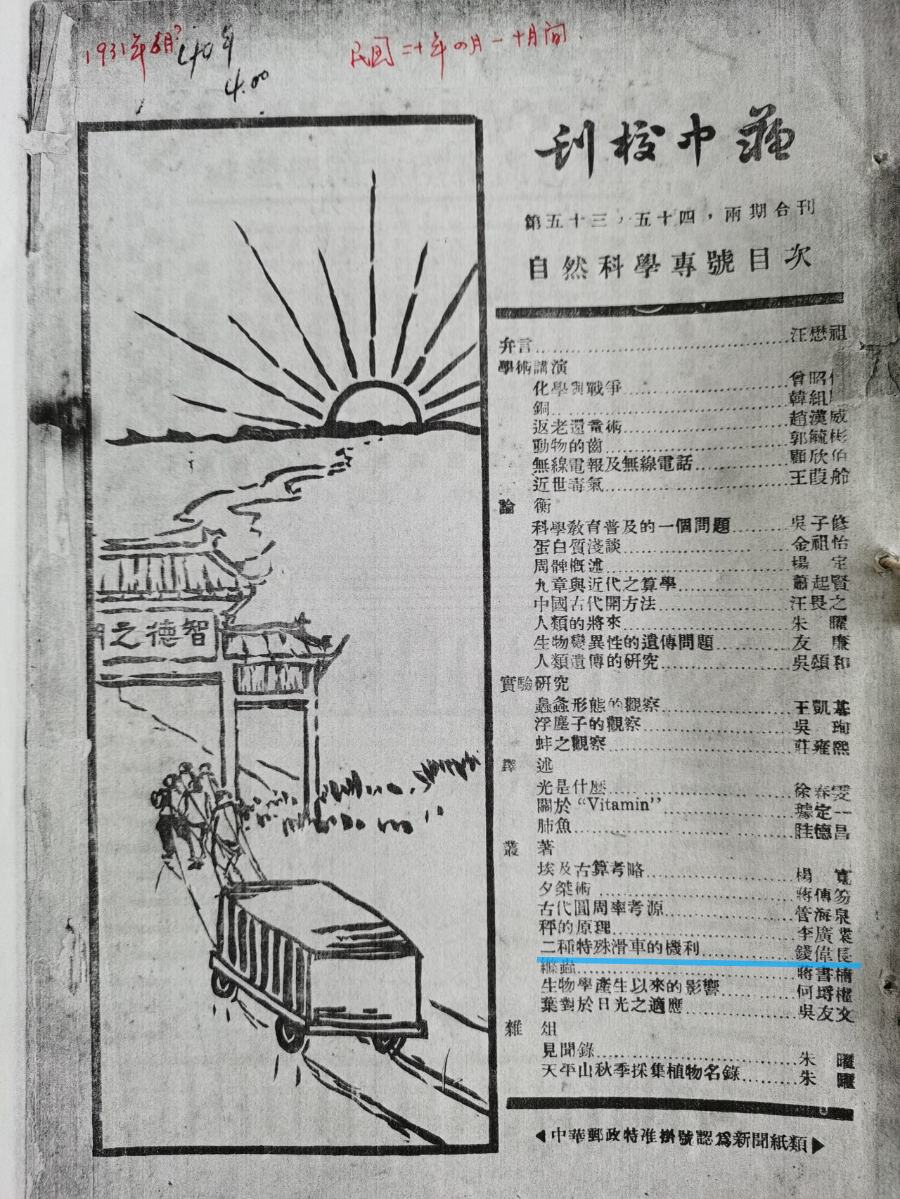 1931年5月?
40年
4.00
民國二十年四月一十月間
蘇中校刊
第五十三,五十四,兩期合刊
自然科學專號目次
弁言 汪懋祖
學術講演
化學與戰爭 曾昭
銅 韓組
返老還童術 趙漢威
動物的齒 郭毓彬
無線電報及無線電話 顧欣伯
近世毒氣 王葭舲
論 衡
科學敎育普及的一個問題 吳子修
蛋白質淺談 金祖怡
周髀概述 楊 定
九章與近代之算學 蕭起賢
中國古代開方法 汪畏之
人類的將來 朱 曜
生物變異性的遺傳問題 友 廉
人類遺傳的研究 吳頌和
實驗研究
螽螽形態的觀察 王凱基
浮塵子的觀察 吳 珣
蚌之觀察 莊雍熙
譯 述
光是什麽 徐春雯
關於“Vitamin” 定一
肺魚 德昌
叢 著
埃及古算考略 楊 寬
夕桀術 蔣傳笏
古代圓周率考源 管海泉
秤的原理 李廣業
二種特殊滑車的機利 錢偉長
蟲 蔣書楠
生物學產生以來的影響 何 權
葉對於日光之適應 吳友文
雜 俎
見聞錄 朱 曜
天平山秋季採集植物名錄 朱 曜
中華郵政特准掛號認爲新聞紙類
智德之門